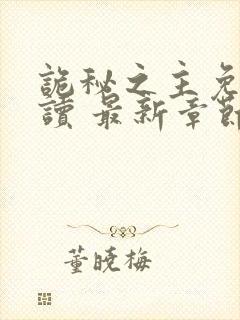 詭秘之主免
讀 最新章節
董曉梅